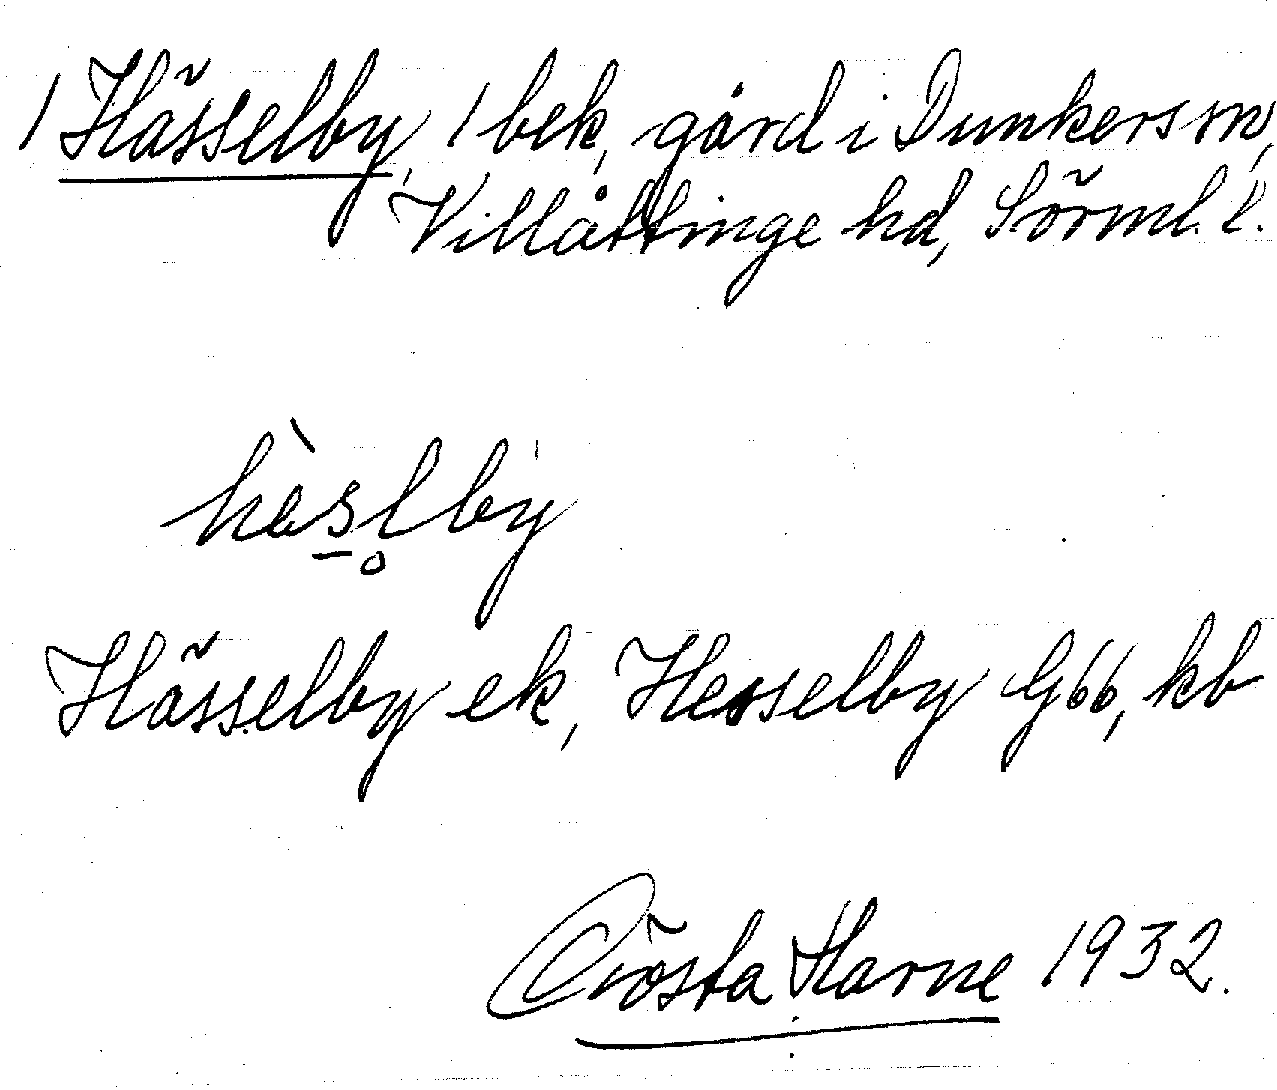 1 Hässelby, 1 bek, gård i Dunkers sn,
Villåttinge hd, Sörml. l.
hàs̲l̥by
Hässelby ek, Hesselby G66, kb
Gösta Harne 1932.